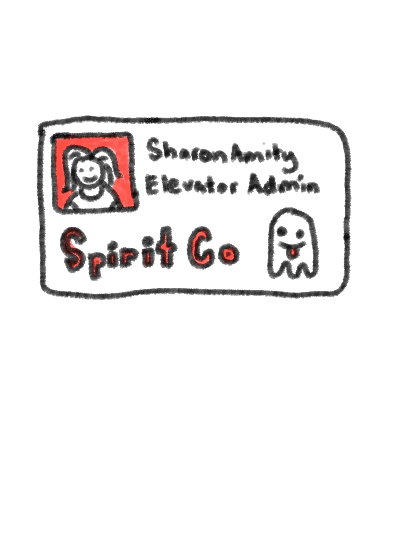 Sharon Amity
Elevator Admin
Spirit Co